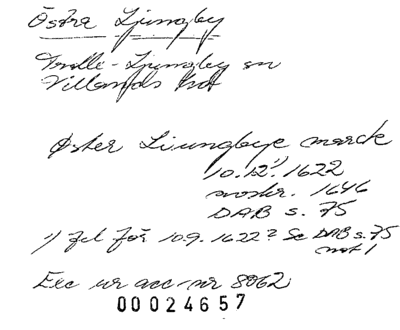 Östra Ljungby
Trolle-Ljungby sn
Villands hd
Øster Liungbye marck
10.12¹⁾. 1622
avskr. 1646
DAB s. 75
1) fel för 10.9. 1622? Se DAB s. 75
not 1
Exc ur acc-nr 8062
00024657